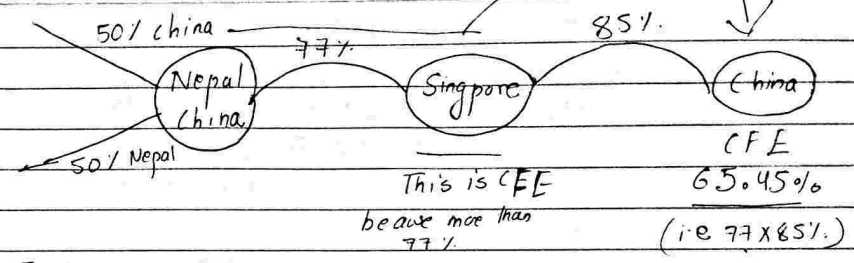 50% china
77%
85%.
Nepal
china
Singpore
China
50% Nepal
This is CFE
because more than
77%.
CFE
65.45%
(i.e 77X85%.)